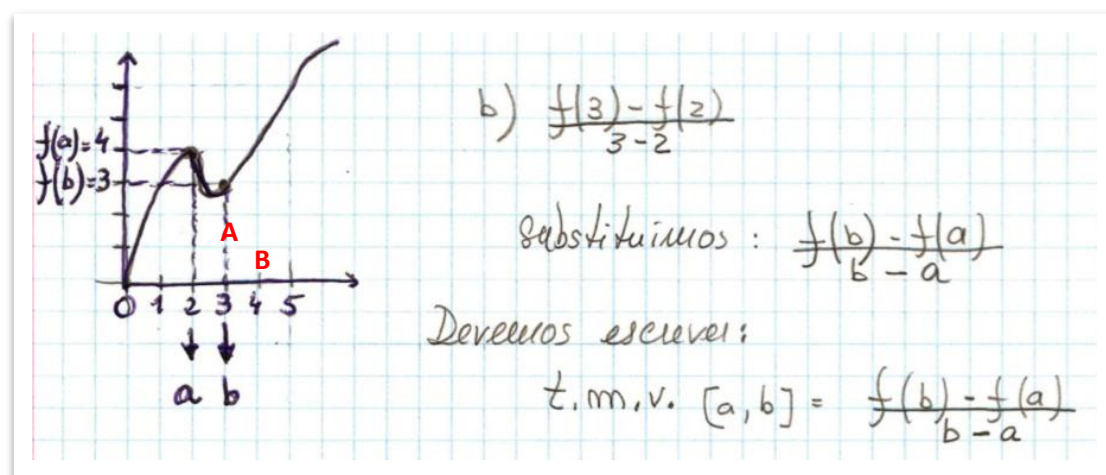 f(a)=4
f(b)=3
A
B
0 1 2 3 4 5
a b
b) f(3)-f(2)
3-2
substituimos : f(b)-f(a)
b-a
Devemos escrever:
t.m.v. [a,b] = f(b)-f(a)
b-a